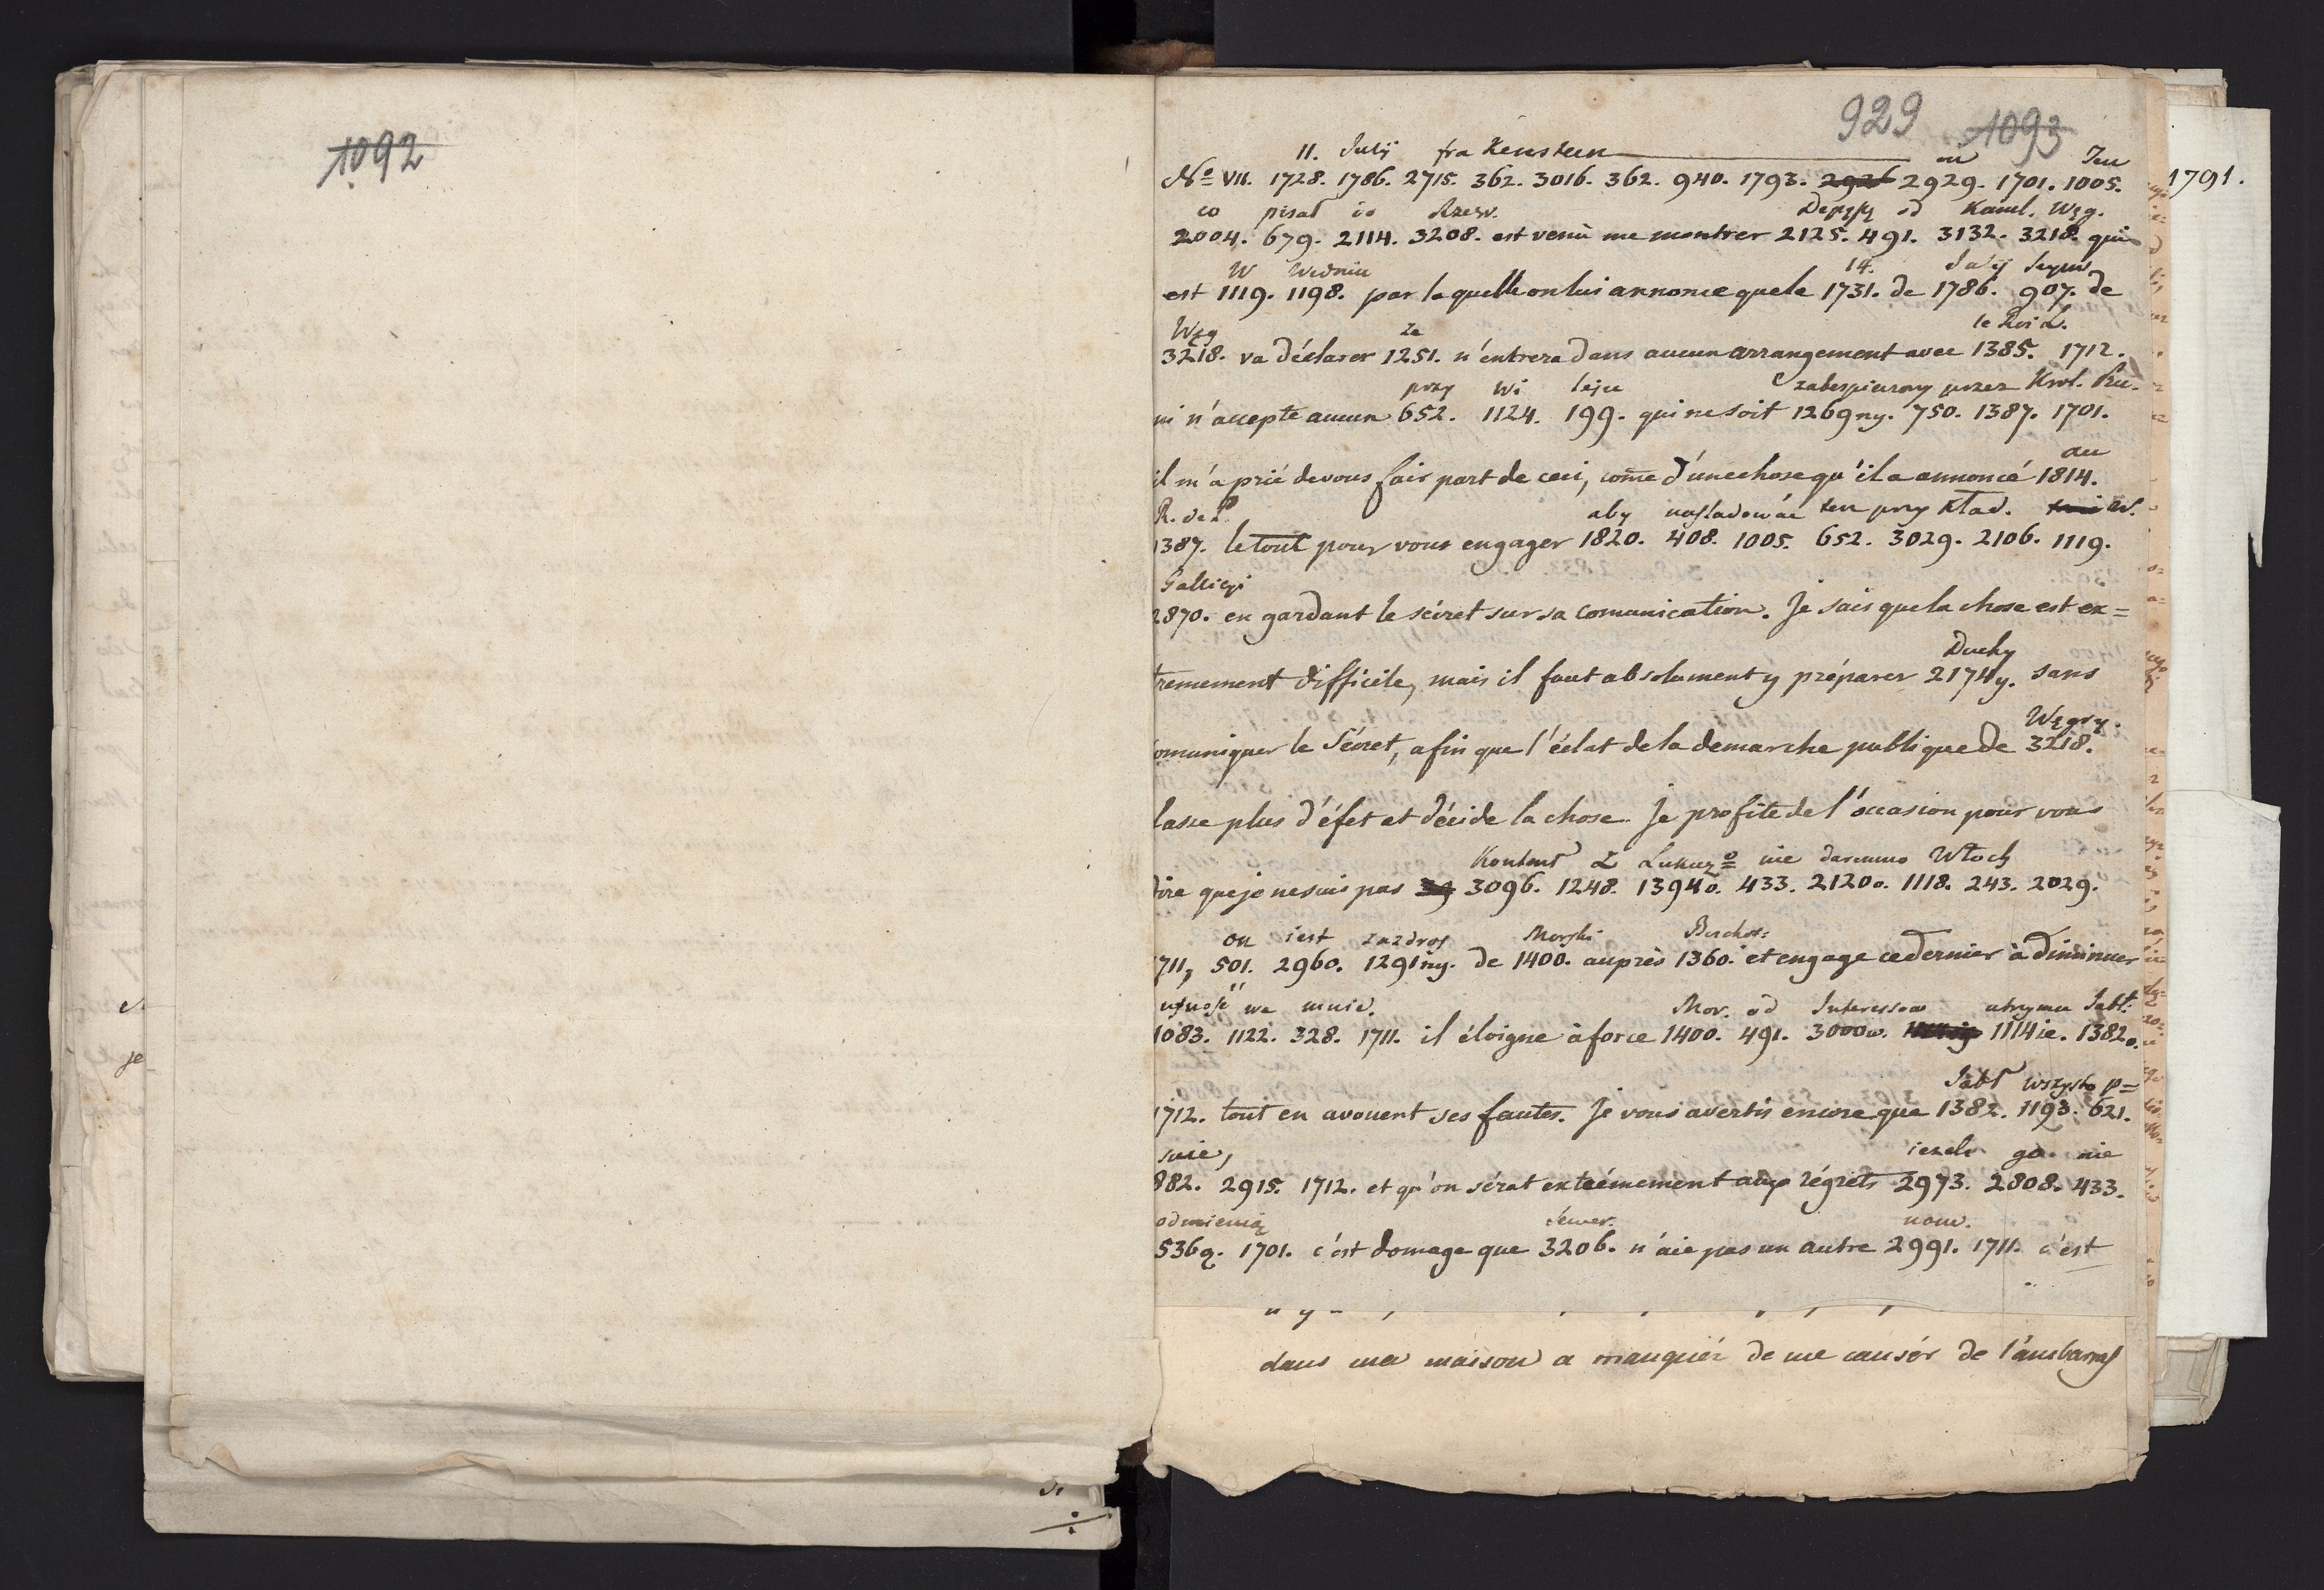 1092
929 1093
11. Julij frankenstein on Ten
No VII. 1728. 1786. 2715. 362. 3016. 362. 940. 1793. 2926 2929. 1701. 1005.
1791.
co pisał do Rzew. Depeszę od Kancl. Węg.
2004. 679. 2114. 3208. est venù me montrer 2125. 491. 3132. 3218. qui
W Wedniu 14. Julij Seym
est 1119. 1198. par laquelle on lui annonce que le 1731. de 1786. 907. de
Węg ze le Roi L.
3218. va déclarer 1251. n'entrera dans aucun arrangement avec 1385. 1712.
przy wi leju zabespieczony przez Krol. Pru.
ni n'accepte aucun 652. 1124. 199. qui ne soit 1269ny. 750. 1387. 1701.
au
il m'a prié de vous fair part de ceci, come d'une chose qu'il a annoncé 1814.
R. de P. aby naśladować ten przy kład. w.
1387. le tout pour vous engager 1820. 408. 1005. 652. 3029. 2106. 1119.
Gallicyi
2870. en gardant le sécret sur sa comunication. Je sais que la chose est ex=
Duchy
tremement difficile, mais il faut absolument y préparer 2174y. sans
Węgry.
comuniquer le Sécret, afin que l'éclat de la demarche publique de 3218.
fasse plus d'éfet et décide la chose. Je profite de l'occasion pour vous
Kontent Z Lukiez nie daremno Włoch
dire que je ne suis pas 3096. 1248. 1394o. 433. 2120o. 1118. 243. 2029.
on iest zazdros Morski Burchol:
711, 501. 2960. 1291ny. de 1400. auprès 1360. et engage ce dernier à diminuer
ufność we mnie. Mor. od Interessow utrzymu Jabł.
1083. 1122. 328. 1711. il éloigne à force 1400. 491. 3000w. 1114ie. 1382o.
Jabł wszysto p=
1712. tout en avouent ses fautes. Je vous avertis encore que 1382. 1193. 621.
suie, iezeli go nie
882. 2915. 1712. et qu'on sérat extrémement aux régrets 2973. 2808. 433.
odmienią Sewer. nom.
536ą. 1701. c'est domage que 3206. n'aie pas un autre 2991. 1711. c'est
dans ma maison a manquér de me causér de l'ambarras